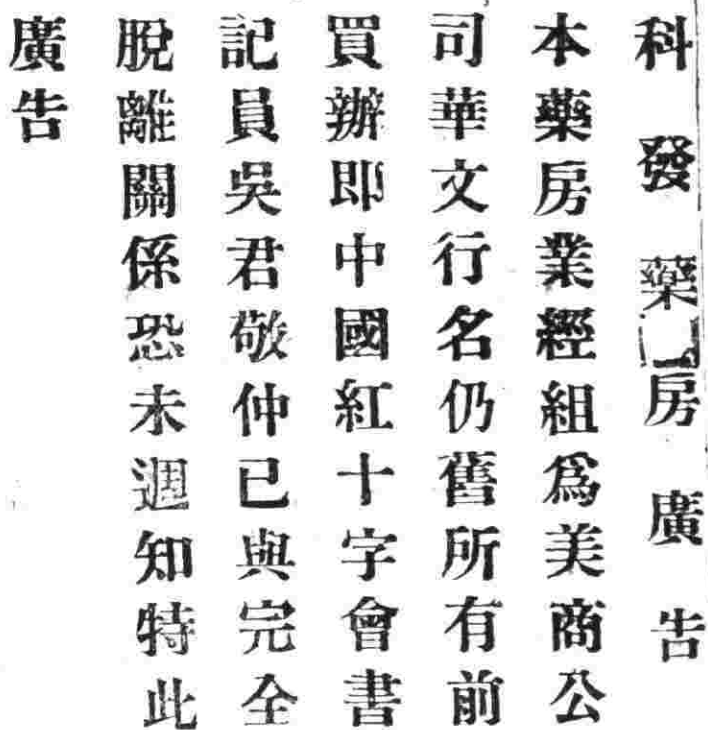 科發藥房廣告
本藥房業經組爲美商公
司華文行名仍舊所有前
買辦即中國紅十字會書
記員吳君敬仲已與完全
脫離關係恐未週知特此
廣告